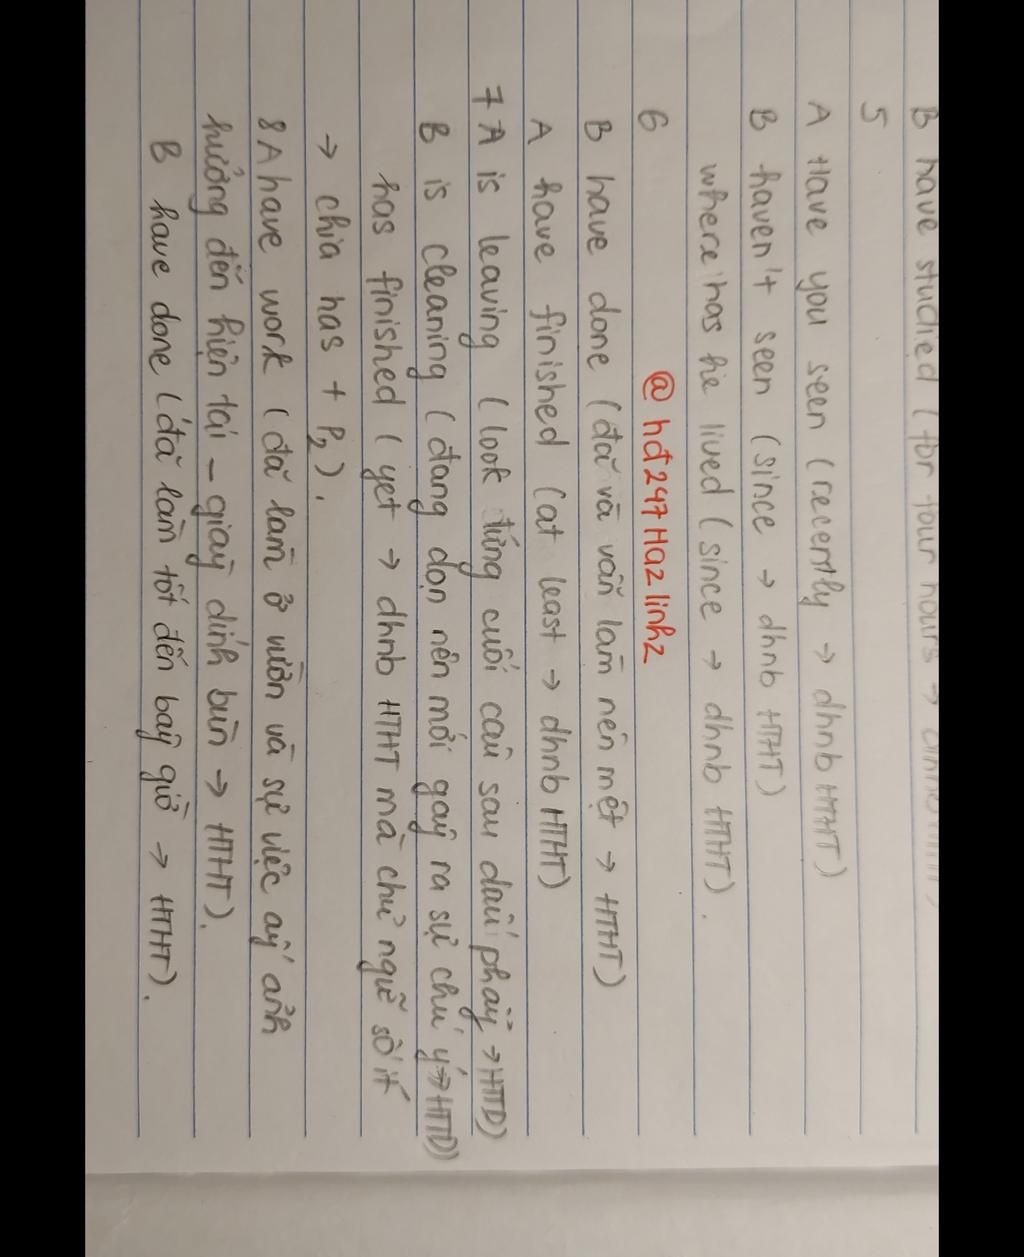 B have studied (for four hours →
5
A Have you seen (recently → dhnb HTHT)
B haven't seen (since → dhnb HTHT)
where has he lived (since → dhnb HTHT).
6
@ hđ247Hazlinhz
B have done (đã và vẫn làm nên mệt → HTHT)
A have finished (at least → dhnb HTHT)
7 A is leaving (look đứng cuối câu sau dấu phẩy → HTTD)
B is cleaning (đang dọn nên mới gây ra sự chú ý → HTTD)
has finished (yet → dhnb HTHT mà chủ ngữ số ít
→ chia has + P2).
8 A have work (đã làm ở vườn và sự việc ấy ảnh
hưởng đến hiện tại - giày dính bùn → HTHT).
B have done (đã làm tốt đến bây giờ → HTHT).